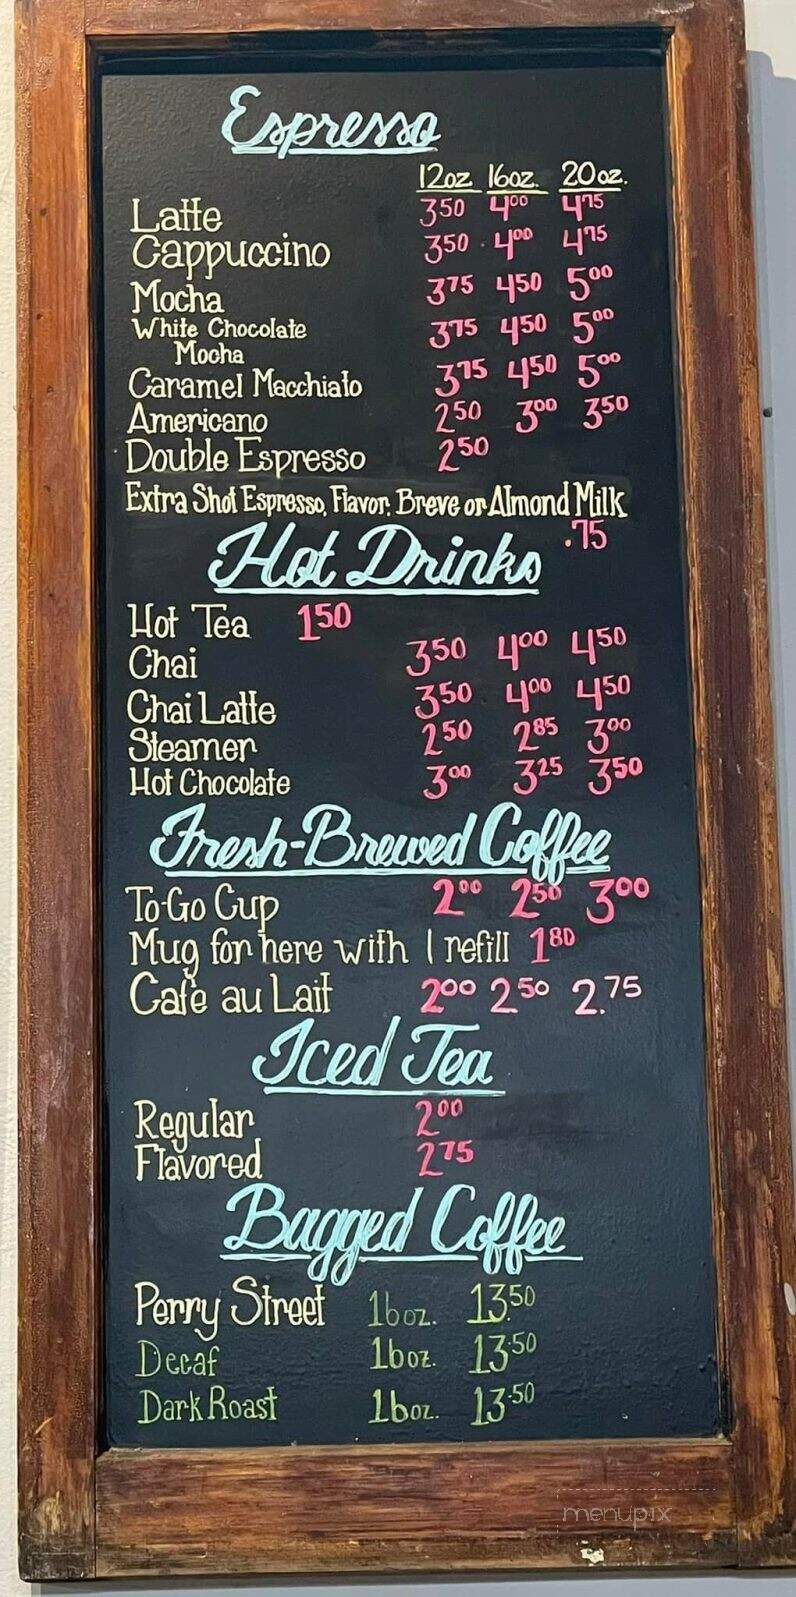 Espresso
12oz 16oz. 20oz.
Latte 3.50 4.00 4.75
Cappuccino 3.50 4.00 4.75
Mocha 3.75 4.50 5.00
White Chocolate
Mocha 3.75 4.50 5.00
Caramel Macchiato 3.75 4.50 5.00
Americano 2.50 3.00 3.50
Double Espresso 2.50
Extra Shot Espresso, Flavor, Breve or Almond Milk
.75
Hot Drinks
Hot Tea 1.50
Chai 3.50 4.00 4.50
Chai Latte 3.50 4.00 4.50
Steamer 2.50 2.85 3.00
Hot Chocolate 3.00 3.25 3.50
Fresh-Brewed Coffee
To-Go Cup 2.00 2.50 3.00
Mug for here with 1 refill 1.80
Cafe au Lait 2.00 2.50 2.75
Iced Tea
Regular 2.00
Flavored 2.75
Bagged Coffee
Perry Street 16oz. 13.50
Decaf 16oz. 13.50
Dark Roast 16oz. 13.50
menupix